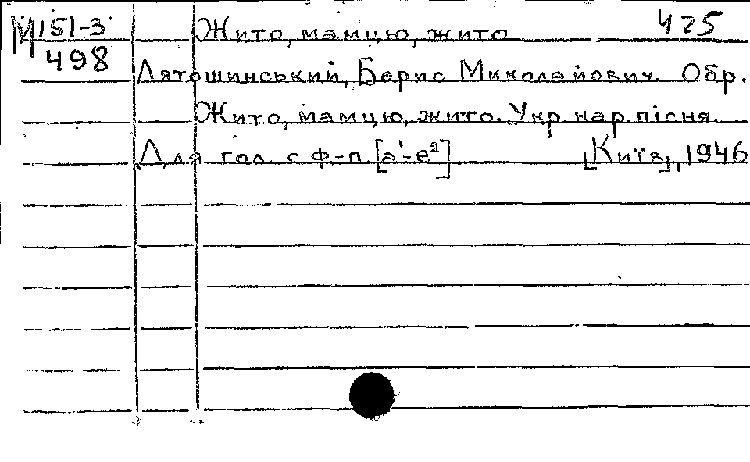 М 151-3 Жито, мамцю, жито 425
498 Лятошинський, Борис Миколайович. Обр.
Жито, мамцю, жито. Укр. нар. пісня.
Для гол. с ф-п. [а¹-е²] [Київ], 1946